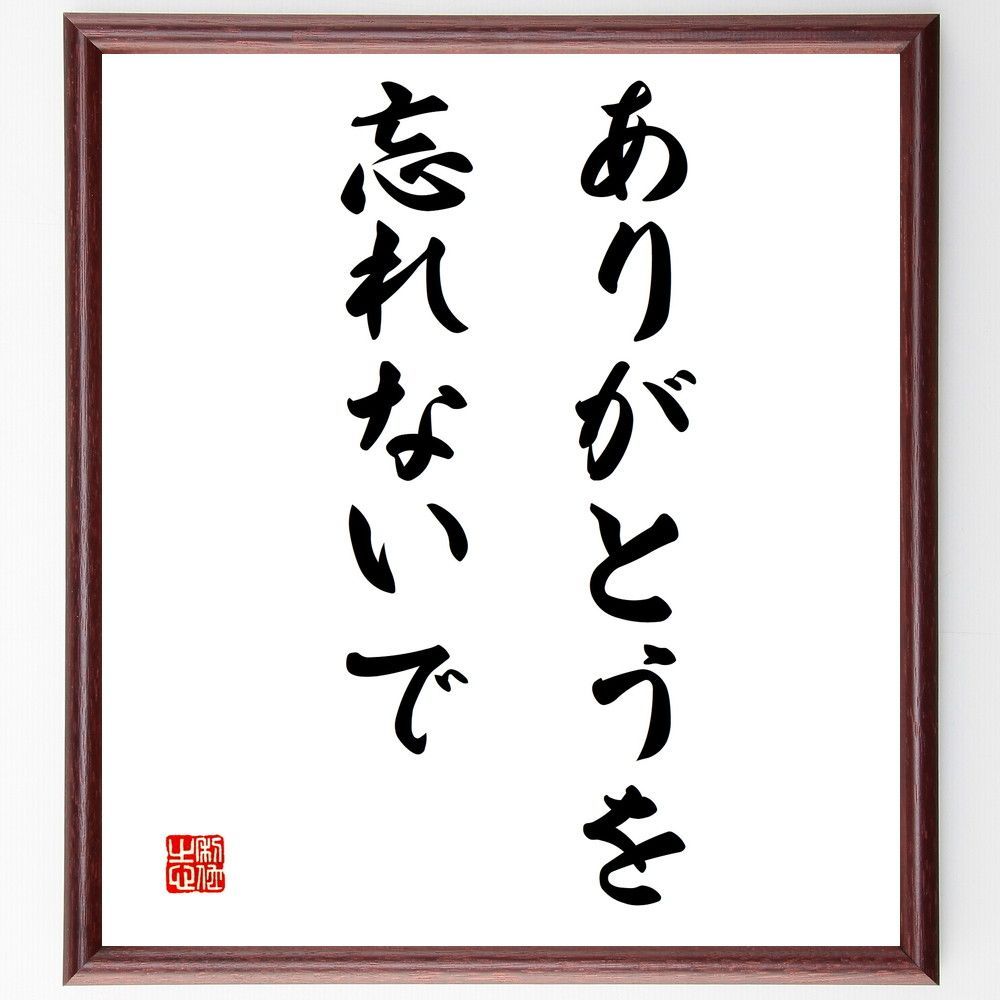 ありがとうを
忘れないで